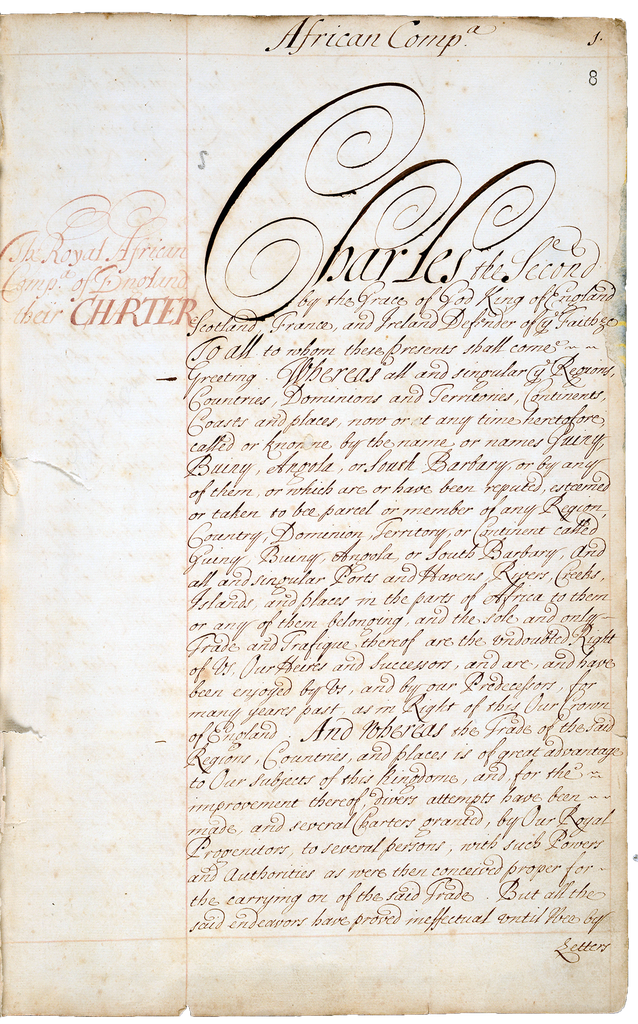 African Comp.a
1.
8
5
The Royal African
Comp.a of England
their CHARTER
Charles the Second
by the Grace of God King of England
Scotland, France, and Ireland Defender of ye Faith &c
To all to whom these presents shall come
Greeting. Whereas all and singular ye Regions,
Countries, Dominions and Territories, Continents,
Coasts and places, now or at any time heretofore
called or knowne by the name or names Guiny,
Buiny, Angola, or South Barbary, or by any
of them, or which are or have been reputed, esteemed
or taken to bee parcel or member of any Region,
Country, Dominion, Territory, or Continent called
Guiny, Buiny, Angola, or South Barbary, And
all and singular Ports and Havens, Rivers, Creeks,
Islands, and places in the parts of Africa to them
or any of them belonging, and the sole and only
Trade and Trafique thereof are the undoubted Right
of Us, Our Heires and Successors, and are, and have
been enjoyed by Us, and by our Predecessors, for
many yeares past, as in Right of this Our Crown
of England. And Whereas the Trade of the said
Regions, Countries, and places is of great advantage
to Our Subjects of this Kingdome, and, for the
improvement thereof, divers attempts have been
made, and several Charters granted, by Our Royal
Progenitors, to several persons, with such Powers
and Authorities as were then conceived proper for
the carrying on of the said Trade. But all the
said endeavors have proved ineffectual until Wee by
Letters